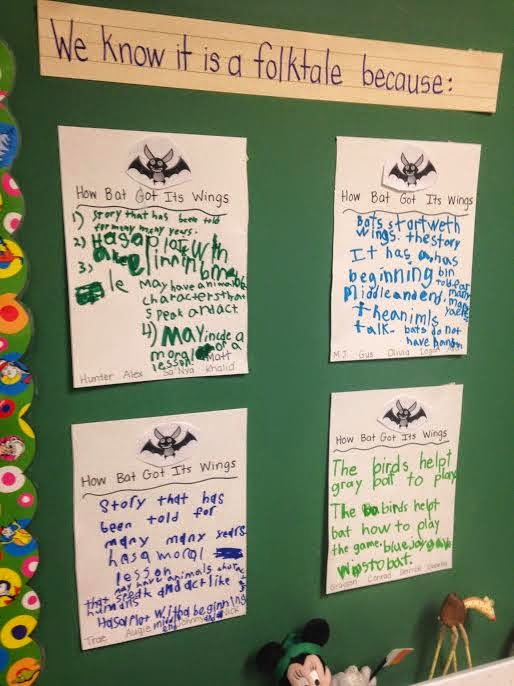 We know it is a folktale because:
How Bat Got Its Wings
1) Story that has been told
for many many years.
2) Hasaplotwith
3)
le may have animals
characters that
speak andact
4) May inclde a
moral or a
lesson. Matt
Hunter Alex Sa'Nya Khalid
How Bat Got Its Wings
Bats start weth
wings. the story
It has a has
beginning bin
told for
Middle and end. many
many
the animls
talk. bats do not
have
M.J. Gus Olivia Logan
How Bat Got Its Wings
Story that has
been told for
many many years
hasa moral
lesson
may have animals
that speak andact like
humans
Hasa Plot with a beginning
middle and
end
Trae Augie Johnny
How Bat Got Its Wings
The birds helpt
gray bat to play
The birds helpt
bat how to play
the game. bluejoy gave
wigs to bat.
Grayson Conrad